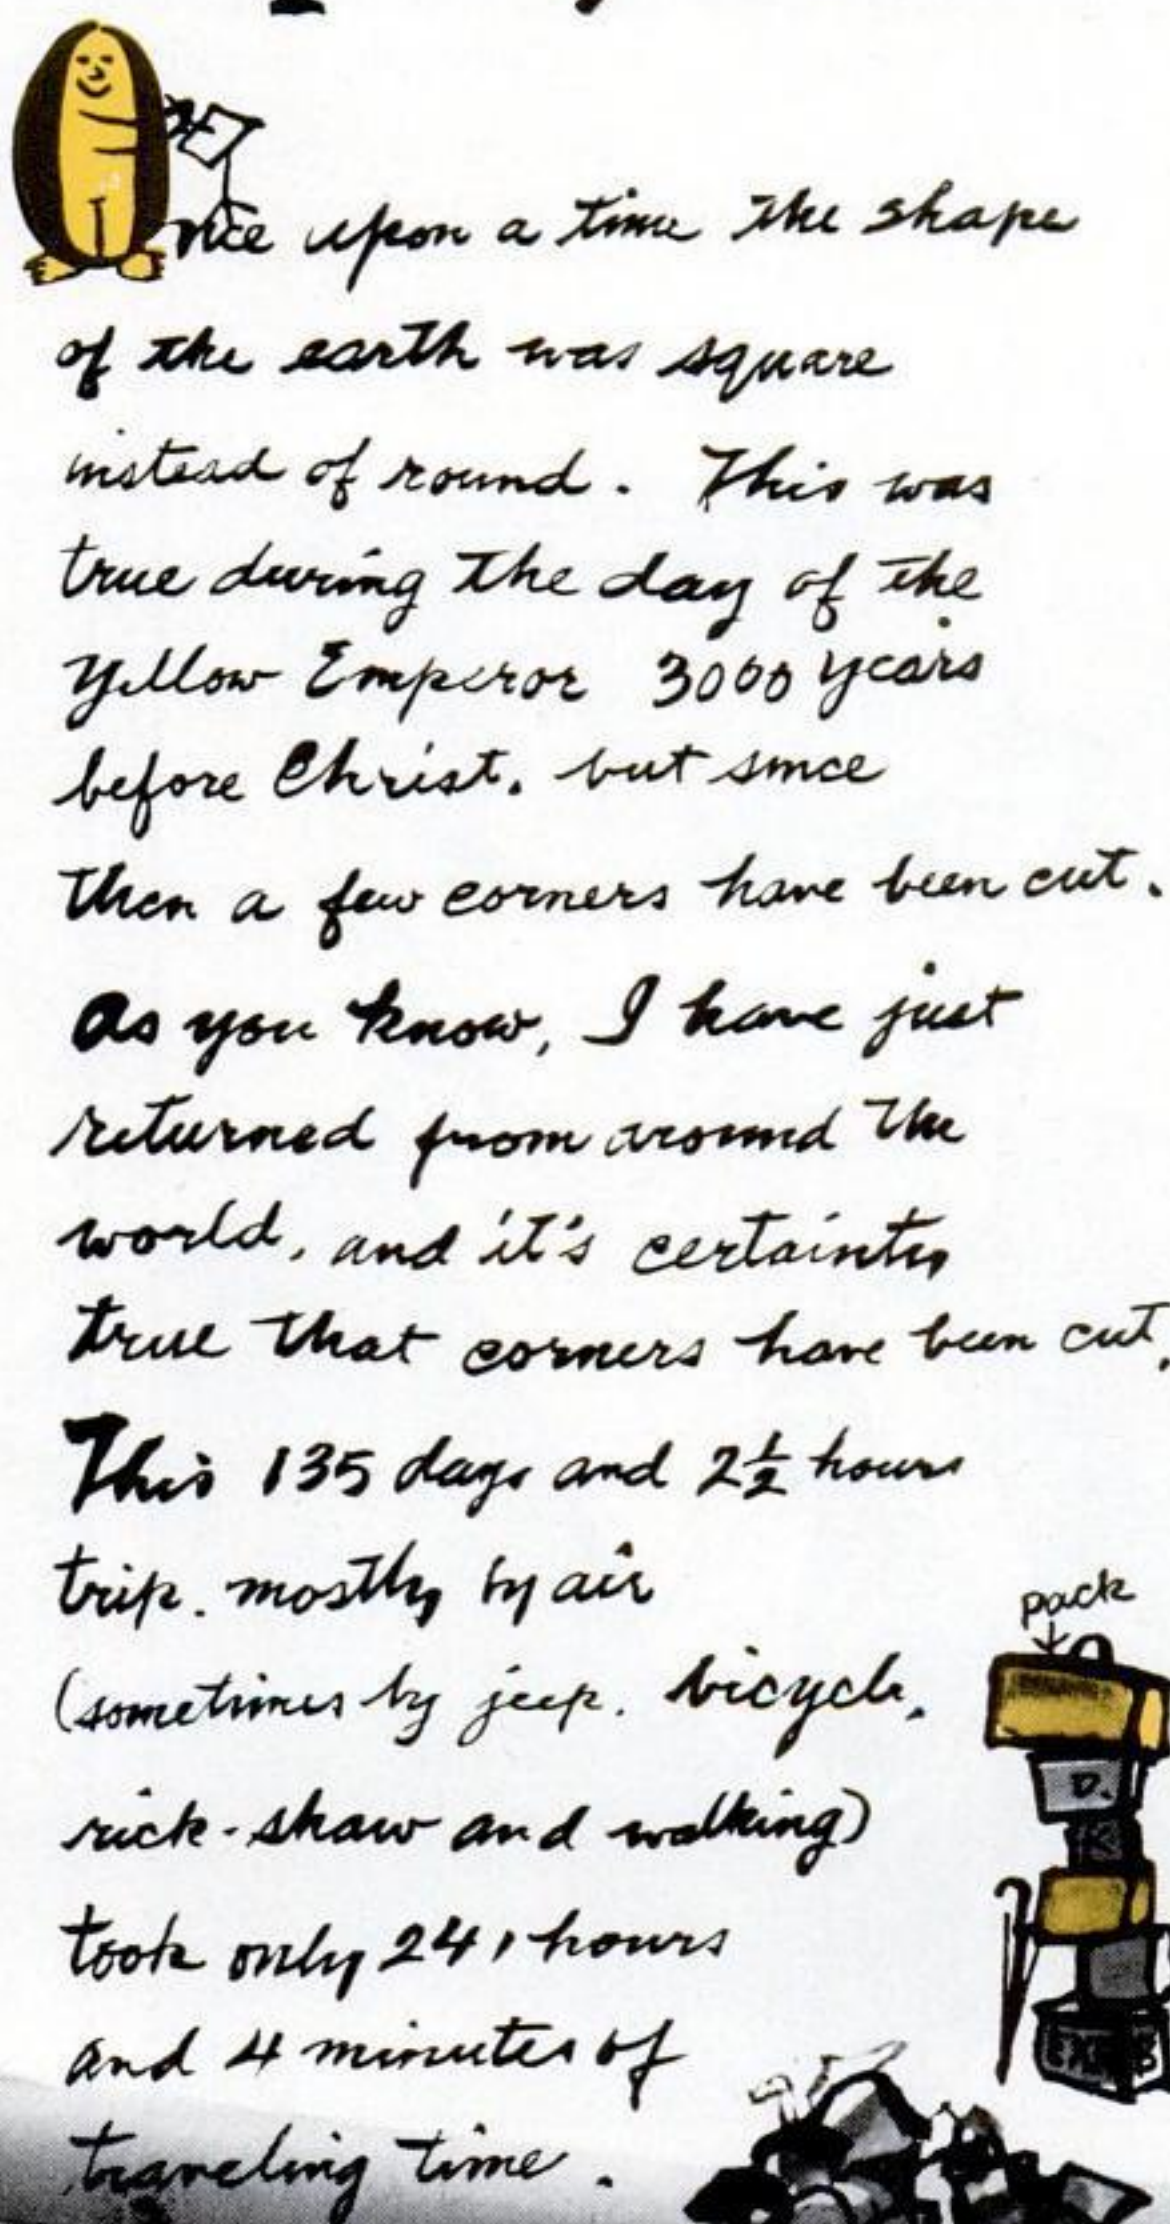 Once upon a time the shape
of the earth was square
instead of round. This was
true during the day of the
Yellow Emperor 3000 years
before Christ. but since
then a few corners have been cut.
As you know, I have just
returned from around the
world, and it's certainty
true that corners have been cut.
This 135 days and 2½ hours
trip. mostly by air
(sometimes by jeep. bicycle.
rick-shaw and walking)
took only 241 hours
and 4 minutes of
traveling time.
pack
D.